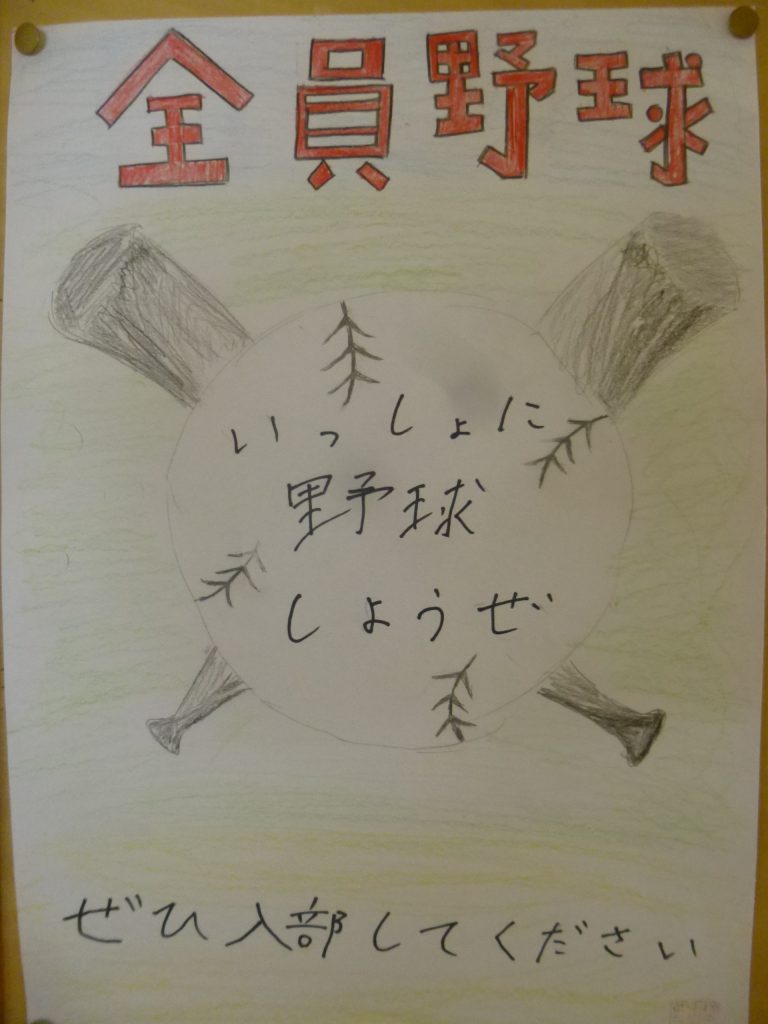 全員野球
いっしょに
野球
しようぜ
ぜひ入部してください